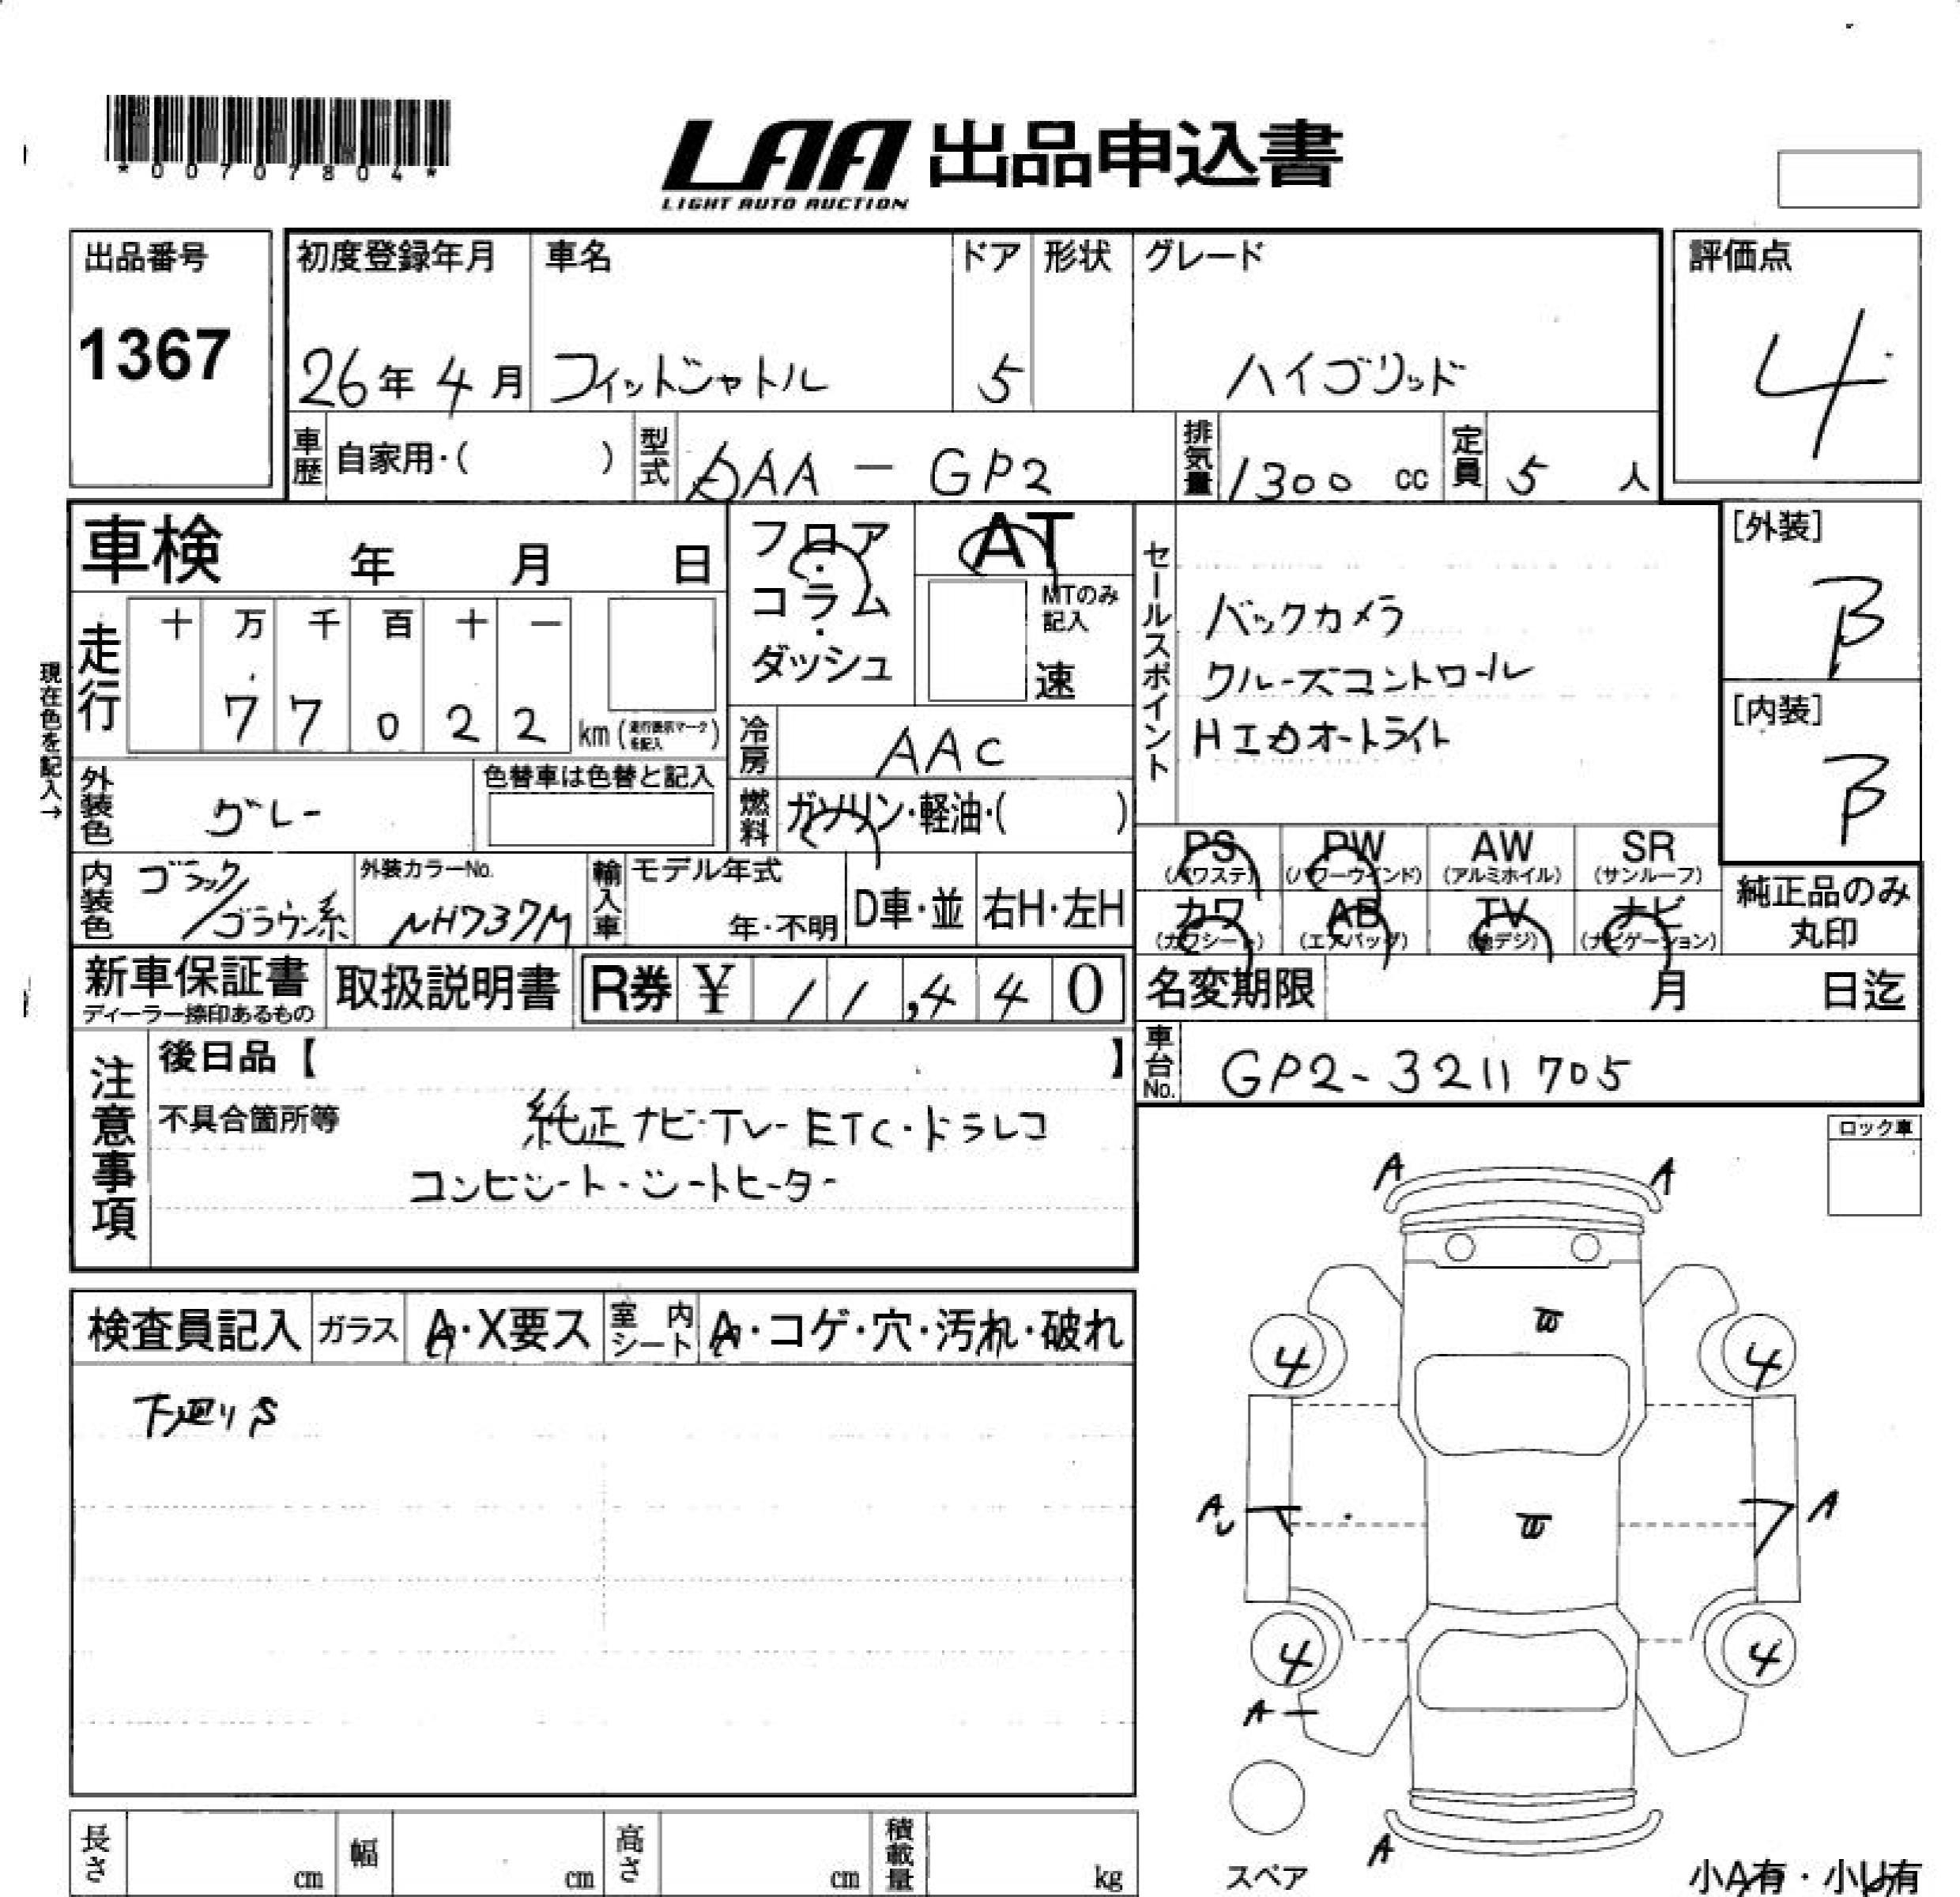 *00707804*
LAA 出品申込書
LIGHT AUTO AUCTION
出品番号
1367
初度登録年月 車名 ドア 形状 グレード
26年 4月 フィットシャトル 5 ハイブリッド
評価点
4
車歴 自家用・( ) 型式 DAA - GP2 排気量 1300 cc 定員 5 人
車検 年 月 日
フロア・コラム・ダッシュ
AT
MTのみ記入
速
現在色を記入→
走行 十 万 千 百 十 一
7 7 0 2 2 km (走行表示マークを記入)
冷房 AAC
外装色 グレー
色替車は色替と記入
燃料 ガソリン・軽油・( )
内装色 ブラック/ブラウン系
外装カラーNo.
NH737M
輸入車 モデル年式
年・不明 D車・並 右H・左H
セールスポイント
バックカメラ
クルーズコントロール
HIDオートライト
[外装]
B
[内装]
B
PS (パワステ) PW (パワーウインド) AW (アルミホイル) SR (サンルーフ)
カワ (カワシート) AB (エアバッグ) TV (地デジ) ナビ (ナビゲーション)
純正品のみ
丸印
新車保証書
ディーラー捺印あるもの
取扱説明書 R券 ¥ 11,440
名変期限 月 日迄
車台No. GP2-3211705
注意事項
後日品【 】
不具合箇所等 純正ナビ・TV・ETC・ドラレコ
コンビシート・シートヒーター
ロック車
検査員記入 ガラス A・X要ス 室内シート A・コゲ・穴・汚れ・破れ
下廻りS
A A
4 4
A A
4 4
A
A
スペア
小A有・小U有
長さ cm 幅 cm 高さ cm 積載量 kg